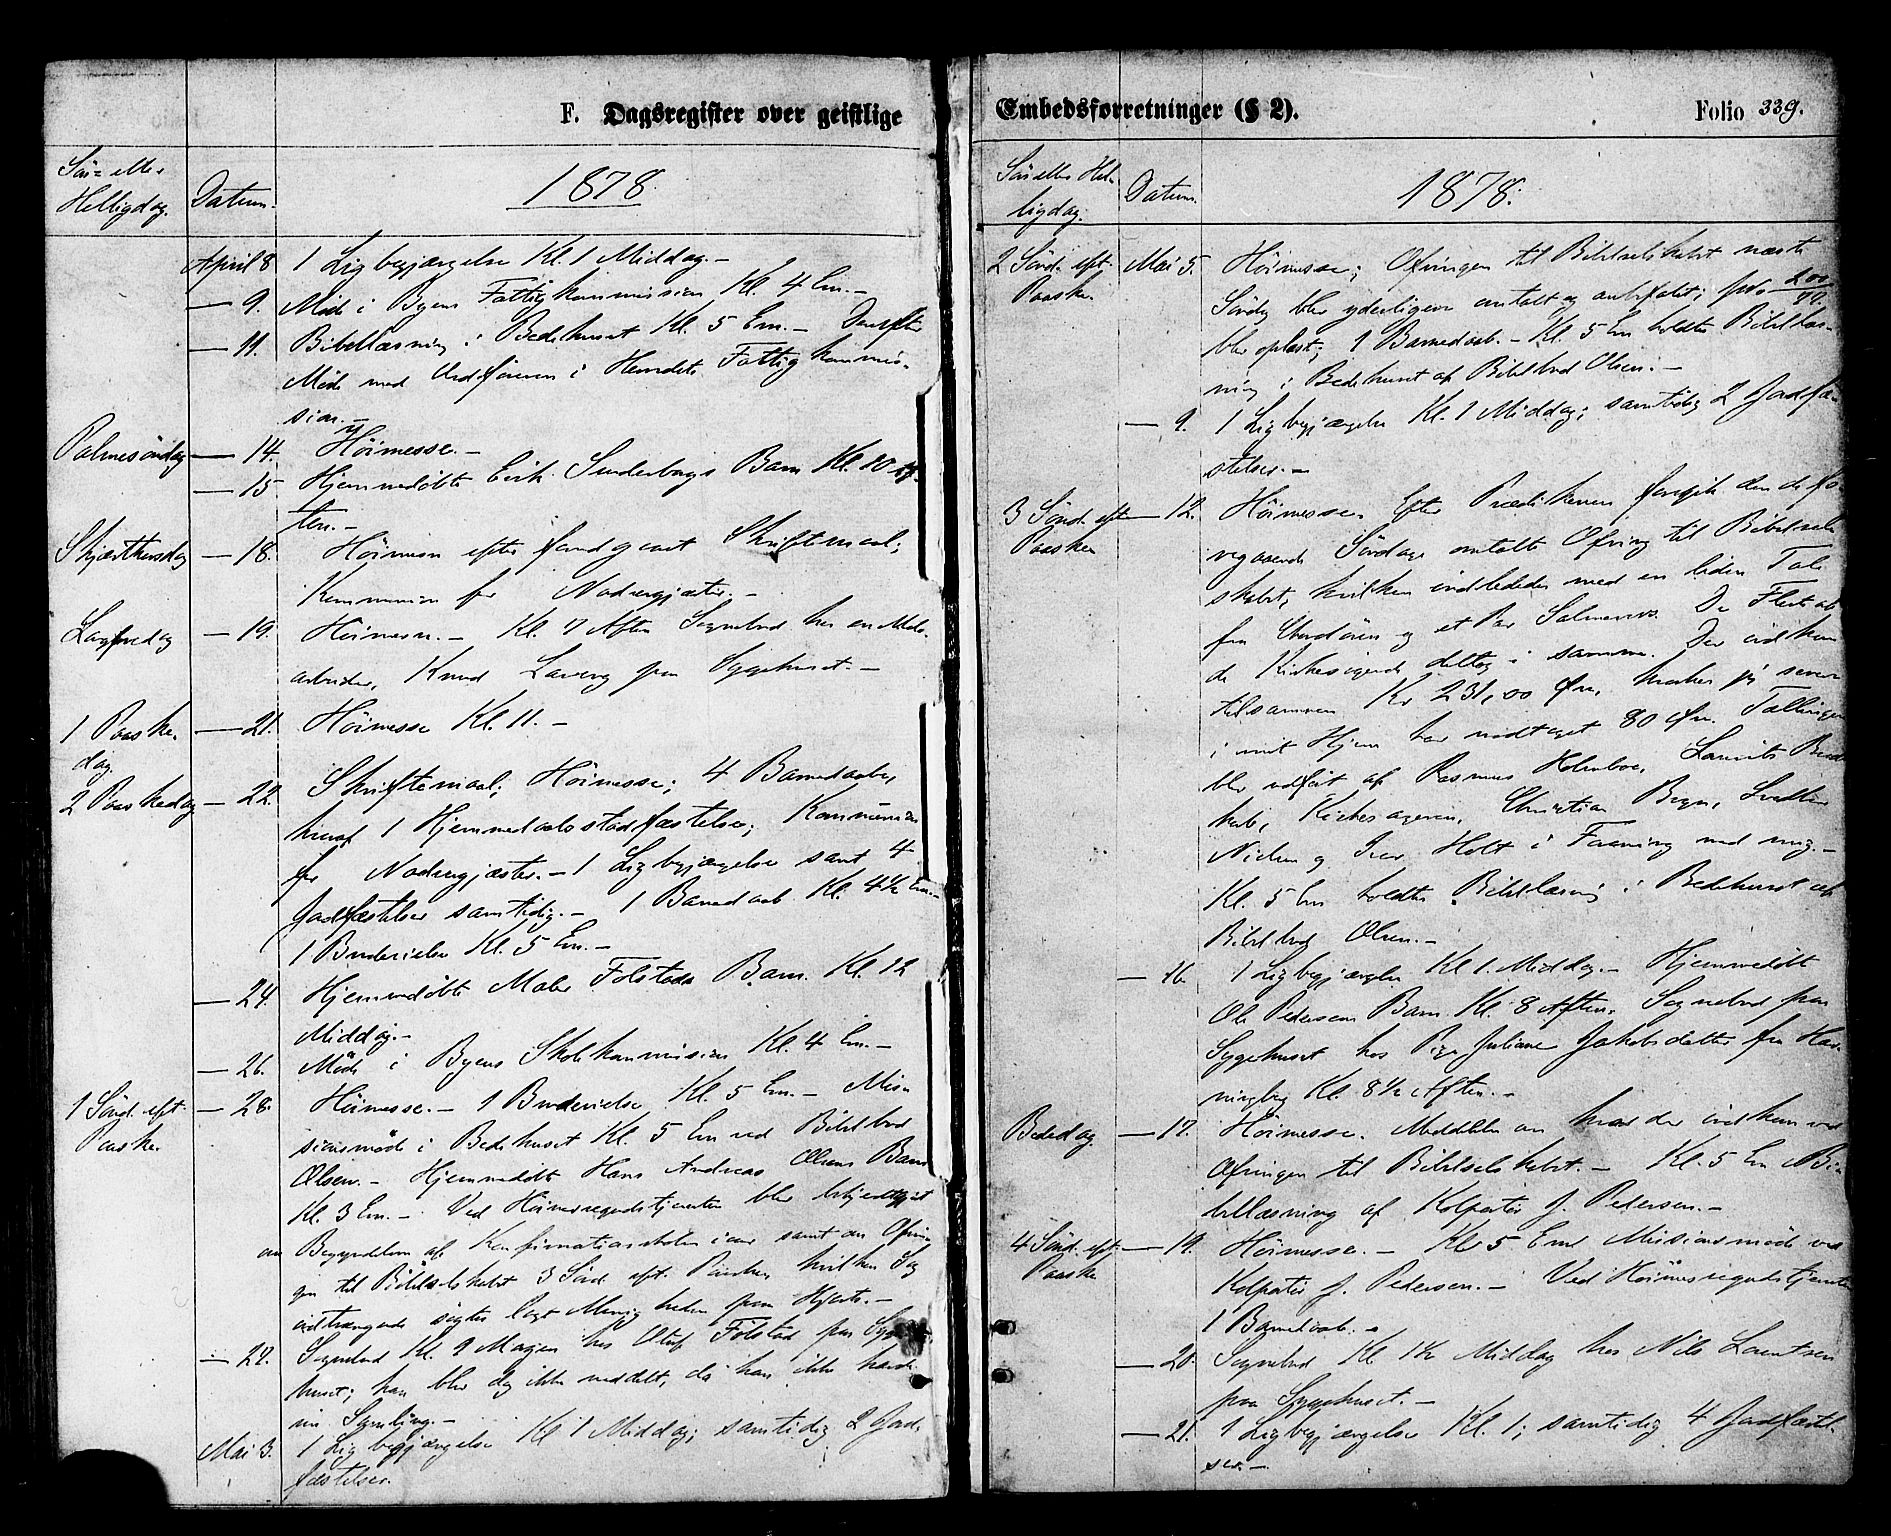 F. Dagsregister over geistlige
Søn- eller
Helligdag.
Datum.
1878.
April 8 1 Ligbegjængelse Kl. 1 Middag.-
— 9. Møde i Byens Fattigkommission Kl. 4 Em.-
— 11. Bibellæsning i Bedehuset Kl. 5 Em.- Derefter
Møde med Ordføreren i Herredets Fattigkommis-
sion.
Palmesøndag — 14. Höimesse.-
— 15 Hjemmedøbte Erik Sunderbergs Barn Kl. 10
Skjærthorsdag — 18. Höimesse efter foregaaet Skriftemaal;
Kommunion for Nadvergjæster.-
Langfredag — 19. Höimesse.- Kl. 7 Aften Sognebud hos en
arbeider, Knud paa Sygehuset.-
1 Paaske-
dag
— 21. Höimesse Kl. 11.-
2 Paaskedag — 22. Skriftemaal; Höimesse; 4 Barnedaab,
hvoraf 1 Hjemmedaabsstadfæstelse; Kommunion
for Nadvergjæster.- 1 Ligbegjængelse samt 4
Jordfæstelser samtidig.- 1 Barnedaab Kl. 4½ Em.-
1 Brudevielse Kl. 5 Em.-
— 24. Hjemmedøbte Maler Folstads Barn Kl. 12
Middag.-
— 26. Møde i Byens Skolekommission Kl. 4 Em.-
1 Sönd. eft.
Paaske.
— 28. Höimesse.- 1 Brudevielse Kl. 5 Em.- Mis-
sionsmöde i Bedehuset Kl. 5 Em ved Bibelbud
Olsen.- Hjemmedöbt Hans Andreas Olsens Barn
Kl. 3 Em.- Ved Höimessegudstjenesten blev bekjendtgjort
om Begyndelsen af Konfirmationsskolen i aar samt om Ofrin-
gen til Bibelselskabet 3 Sönd. eft. Paaske, hvilken Sag
indtrængende søgtes lagt Menigheden paa Hjerte.-
— 29. Sognebud Kl. 9 Morgen hos Oluf Folstad paa Syge-
huset; han blev dog ikke meddelt, da han ikke havde
sin Samling.-
Mai 3. 1 Ligbegjængelse Kl 1 Middag; samtidig 2 Jord-
fæstelser.
Embedsforretninger (§ 2).
Folio 339.
Søn eller Hel-
ligdag.
Datum.
1878.
2 Sönd. eft.
Paaske.
Mai 5. Höimesse; Ofringen til Bibelselskabet næste
Söndag blev yderligere omtalt og anbefalet;
blev oplæst; 1 Barnedaab.- Kl. 5 Em holdtes Bibellæs-
ning i Bedehuset af Bibelbud Olsen.-
— 9. 1 Ligbegjængelse Kl. 1 Middag; samtidig 2 Jordfæ-
stelser.-
3 Sönd. eft
Paaske
— 12. Höimesse. Efter Prædikenen foregik den de fo-
regaaende Söndage omtalte Ofring til Bibelsel-
skabet, hvilken indlededes med en liden Tale
fra Chordören og et Par Salmevers. De Fleste af
de Kirkesögende deltog i samme. Der indkom
tilsammen Kr 231,00 Øre, hvorhos jeg senere
i mit Hjem har modtaget 80 Øre. Tællingen
blev udført af Rasmus Holmboe, Laurits
Kirkesangeren, Christian Bryn,
Nielsen og Iver Holt i Forening med mig.-
Kl. 5 Em holdtes Bibellæsning i Bedehuset af
Bibelbud Olsen.-
— 16. 1 Ligbegjængelse Kl 1. Middag.- Hjemmedöbt
Ole Pedersens Barn Kl. 8 Aften. Sognebud paa
Sygehuset hos Pige Juliane Jakobsdatter fra Hav-
ningberg Kl. 8½ Aften.-
Bededag — 17. Höimesse. Meddelelse om hvad der indkom ved
Ofringen til Bibelselskabet.- Kl. 5 Em Bi-
bellæsning af Kolportör J. Pedersen.-
4 Sönd. eft.
Paaske
— 19. Höimesse.- Kl. 5 Em Missionsmöde ved
Kolportör J. Pedersen.- Ved Höimessegudstjenesten
1 Barnedaab.-
— 20. Sognebud Kl 1½ Middag hos Nils Lauritsen
paa Sygehuset.-
— 21. 1 Ligbegjængelse Kl. 1; samtidig 4 Jordfæstel-
ser.-